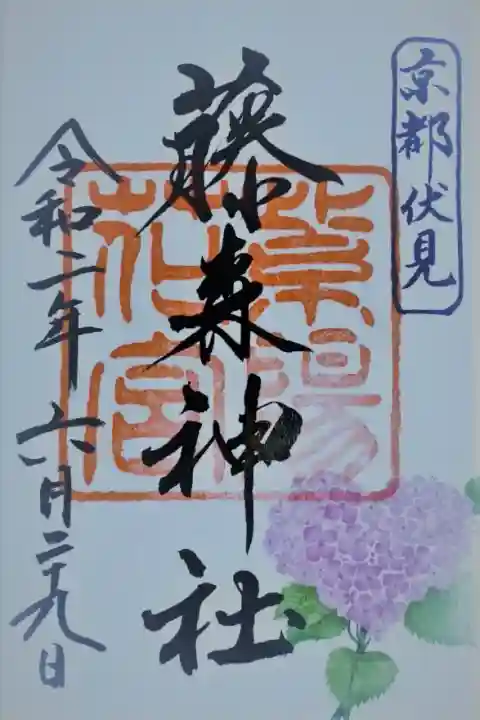 京都伏見
藤森神社
紫陽
花宮
令和二年六月二十九日